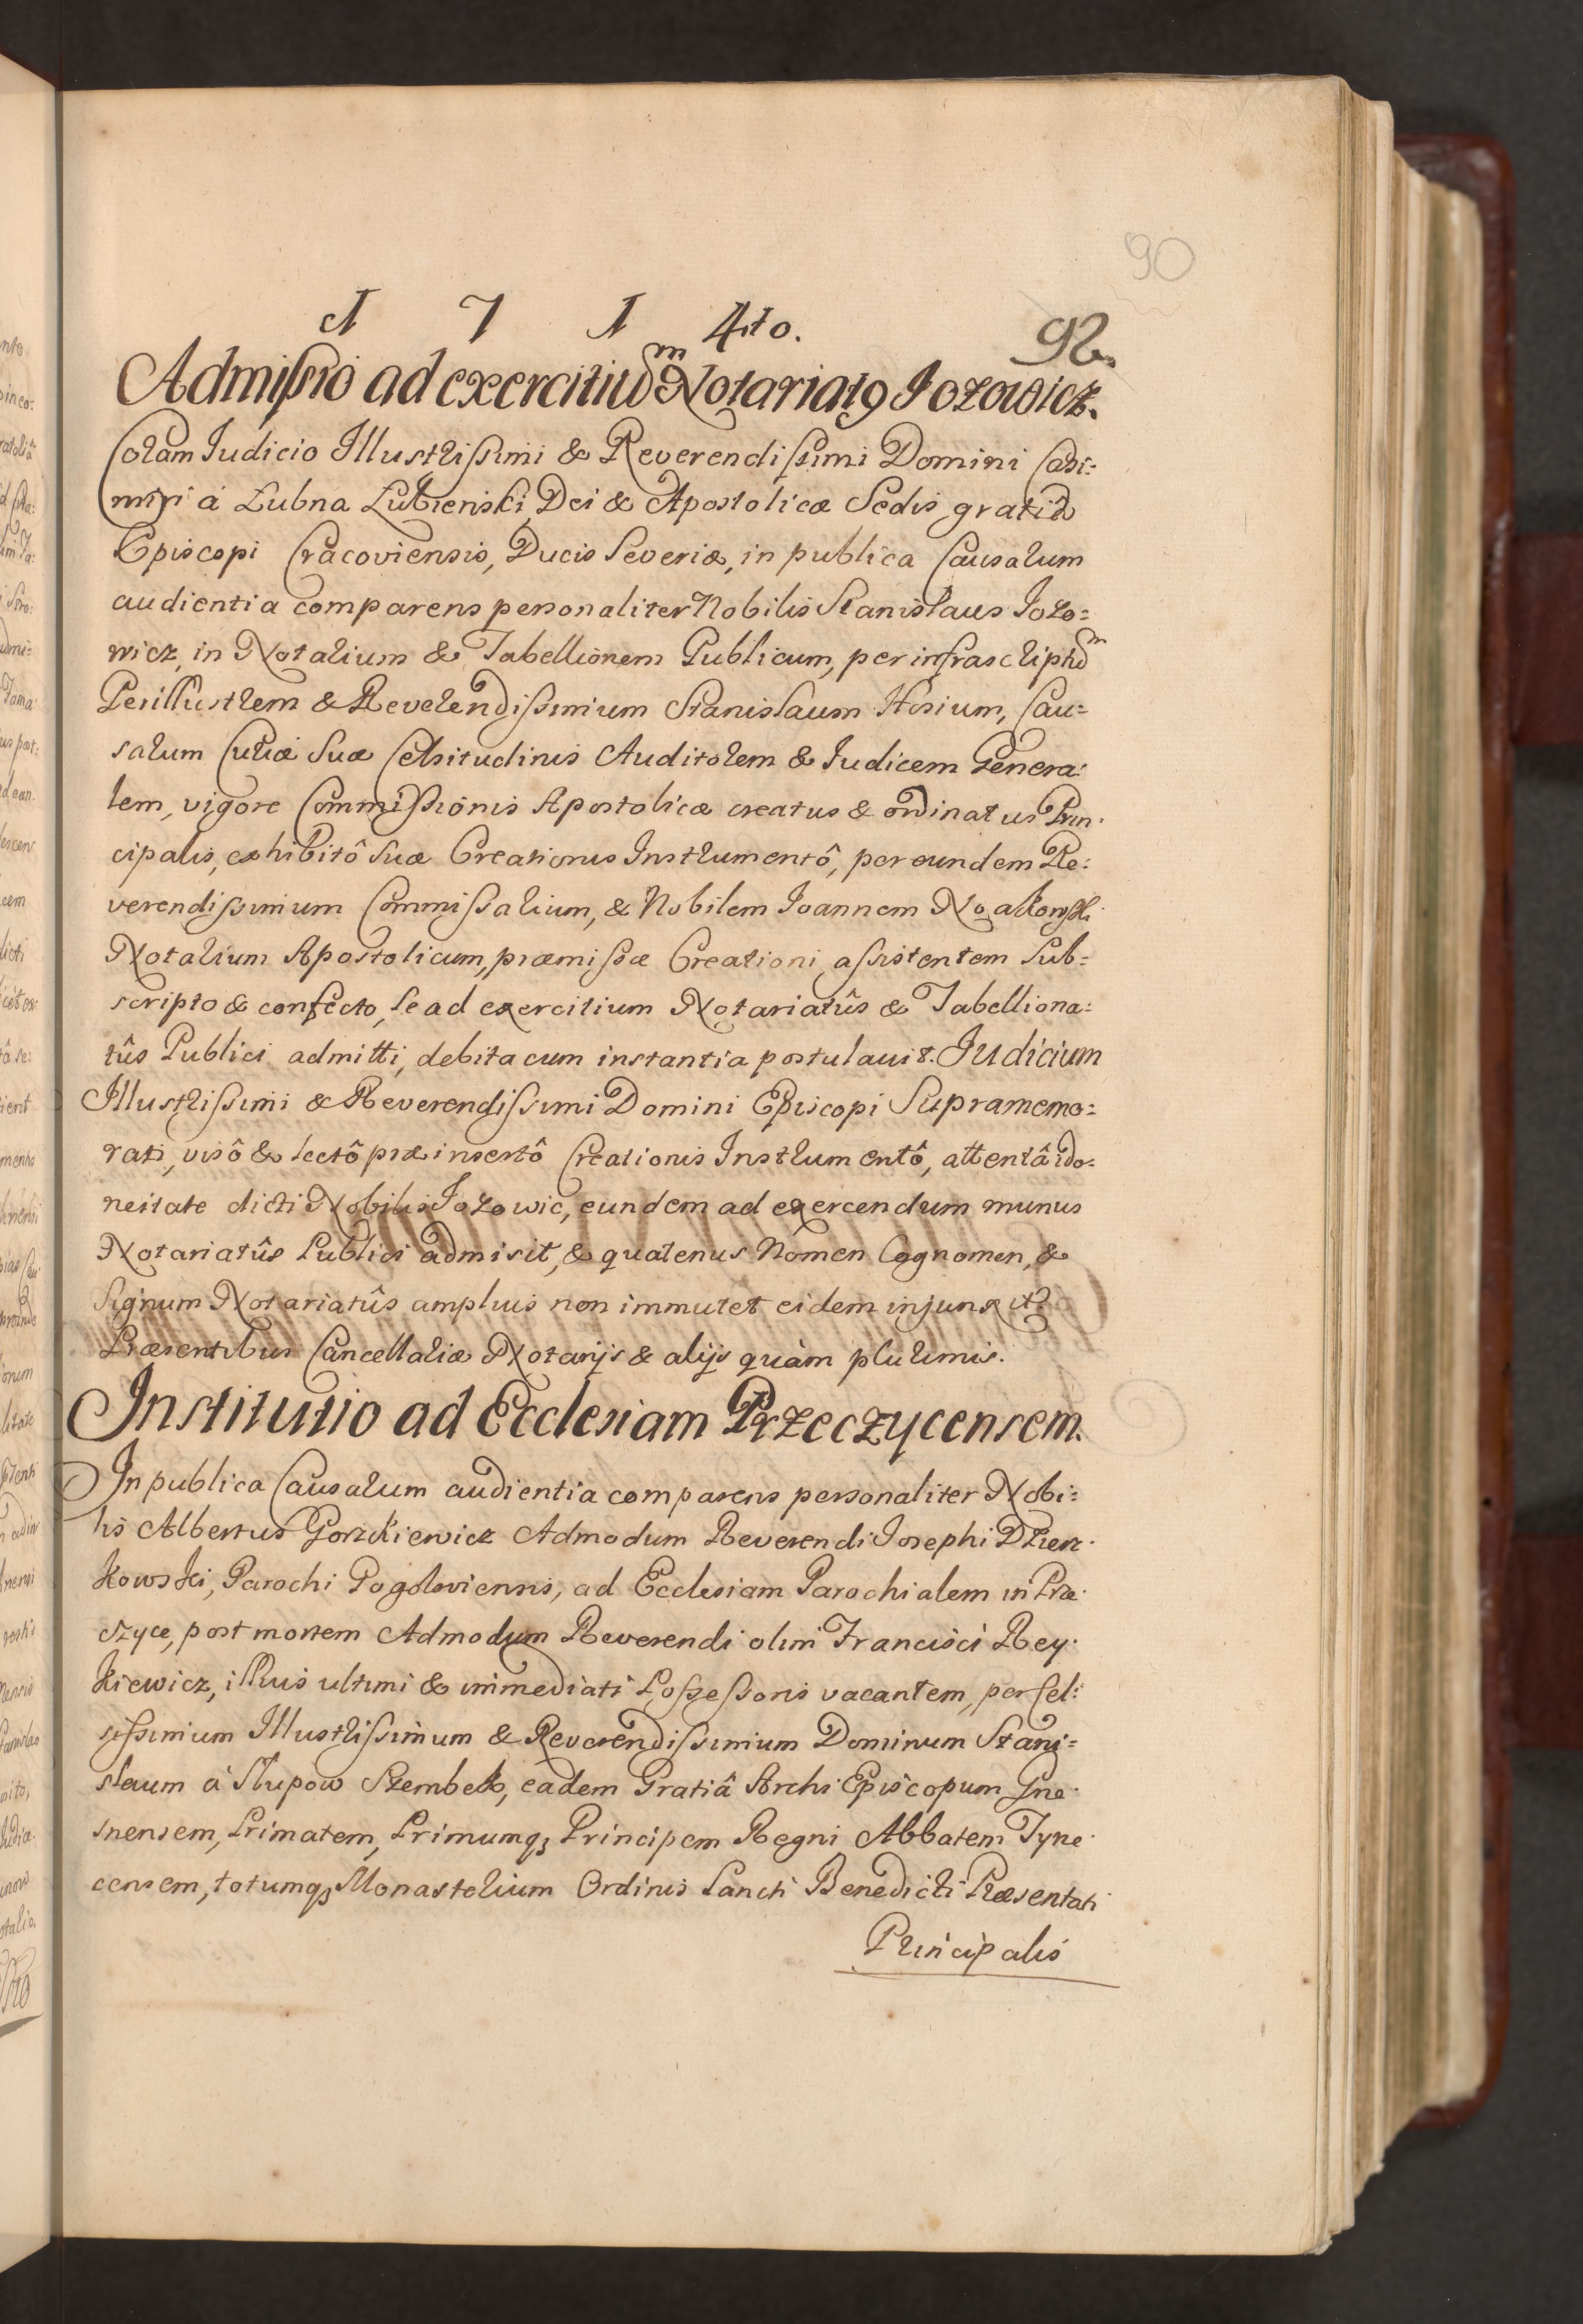 90
1 7 1 4to.
92.
Admissio ad exercitium Notariatus Jozowicz.
Coram Judicio Illustrissimi & Reverendissimi Domini Casi=
miri á Łubna Łubienski, Dei & Apostolicæ Sedis gratia
Episcopi Cracoviensis, Ducis Severiæ, in publica Causarum
audientia comparens personaliter Nobilis Stanislaus Jozo=
wicz, in Notarium & Tabellionem Publicum, per infrascriptum
Perillustrem & Reverendissimum Stanislaum Hosium, Cau=
sarum Curiæ Suæ Celsitudinis Auditorem & Judicem Genera=
lem, vigore Commissionis Apostolicæ creatus & ordinatus Prin=
cipalis, exhibitô Suæ Creationis Instrumentô, per eundem Re=
verendissimum Commissarium, & Nobilem Joannem
Notarium Apostolicum, præmissæ Creationi assistentem Sub=
scripto & confecto, se ad exercitium Notariatûs & Tabelliona=
tûs Publici admitti, debita cum instantia postulavit. Judicium
Illustrissimi & Reverendissimi Domini Episcopi Supramemo=
rati, visô & lectô præinsertô Creationis Instrumentô, attentâ ido=
neitate dicti Nobilis Jozowic, eundem ad exercendum munus
Notariatûs Publici admisit, & quatenus Nomen Cognomen, &
Signum Notariatûs amplius non immutet eidem injunxit.
Præsentibus Cancellariæ Notarijs & alijs quàm plurimis.
Institutio ad Ecclesiam Przeczycensem.
In publica Causarum audientia comparens personaliter Nobi=
lis Albertus Gorzkiewicz Admodum Reverendi Josephi Dzierz=
kowski, Parochi Pogoloviensis, ad Ecclesiam Parochialem in Prze=
czyce, post mortem Admodum Reverendi olim Francisci Rey=
kiewicz, illius ultimi & immediati Possessoris vacantem, per Cel=
sissimum Illustrissimum & Reverendissimum Dominum Stani=
slaum á Słupow Szembek, eadem Gratiâ Archi Episcopum Gne=
snensem, Primatem, Primumq; Principem Regni Abbatem Tyne=
censem, totumq; Monasterium Ordinis Sancti Benedicti Præsentati
Principalis